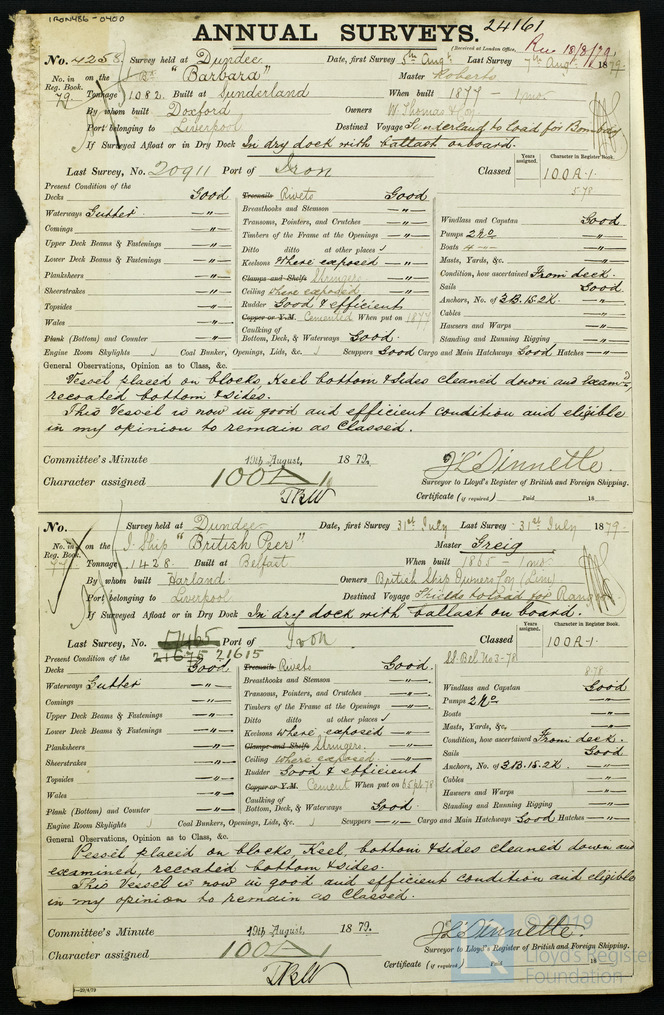 IRON486-0400
ANNUAL SURVEYS. 24161
(Received at London Office, Rec 18/8/79
No. 4258 Survey held at Dundee Date, first Survey 5th Augt Last Survey 7th Augt 1879
No. in Reg. Book. 79 on the Bk "Barbara" Master Roberts
Tonnage 1082 Built at Sunderland When built 1877 - 1 mo
By whom built Doxford Owners W. Thomas & Co.
Port belonging to Liverpool Destined Voyage Sunderland to load for Bombay
If Surveyed Afloat or in Dry Dock In dry dock with ballast onboard.
Last Survey, No. 20911 Port of Iron Classed Years assigned. Character in Register Book. 100A·1·
5·78
Present Condition of the
Decks Good Treenails Rivets Good
Waterways Gutter — " — Breasthooks and Stemson — " — Windlass and Capstan Good
Comings — " — Transoms, Pointers, and Crutches — " — Pumps 2 No
Upper Deck Beams & Fastenings — " — Timbers of the Frame at the Openings — " — Boats 4 — " —
Lower Deck Beams & Fastenings — " — Ditto ditto at other places √ Masts, Yards, &c. — " —
Planksheers — " — Keelsons Where exposed — " — Condition, how ascertained From deck.
Sheerstrakes — " — Clamps and Shelfs Stringers — " — Sails Good
Topsides — " — Ceiling where exposed — " — Anchors, No. of 3B.1S.2K. — " —
Wales — " — Rudder Good & efficient Cables — " —
Plank (Bottom) and Counter — " — Copper or Y.M. Cemented When put on 1877 Hawsers and Warps — " —
Caulking of Bottom, Deck, & Waterways Good. Standing and Running Rigging — " —
Engine Room Skylights √ Coal Bunker, Openings, Lids, &c. √ Scuppers Good Cargo and Main Hatchways Good Hatches — " —
General Observations, Opinion as to Class, &c.
Vessel placed on blocks, Keel bottom & sides cleaned down and examd,
recoated bottom & sides.
This Vessel is now in good and efficient condition and eligible
in my opinion to remain as Classed.
Committee's Minute 19th August, 1879.
Character assigned 100A1
Surveyor to Lloyd's Register of British and Foreign Shipping.
Certificate (if required) Paid 18
No. Survey held at Dundee Date, first Survey 31st July Last Survey 31st July 1879
No. in Reg. Book. on the I. Ship "British Peer" Master Greig
Tonnage 1428 Built at Belfast When built 1865 - 1 mo
By whom built Harland Owners British Ship Owners Coy (Lim)
Port belonging to Liverpool Destined Voyage Shields to load for
If Surveyed Afloat or in Dry Dock In dry dock with ballast on board.
Last Survey, No. 21675 21615 Port of Iron Classed Years assigned. Character in Register Book. 100A·1·
SS. Bel. No 3-78
8·78
Present Condition of the
Decks Good Treenails Rivets Good
Waterways Gutter — " — Breasthooks and Stemson — " — Windlass and Capstan Good
Comings — " — Transoms, Pointers, and Crutches — " — Pumps 2 No
Upper Deck Beams & Fastenings — " — Timbers of the Frame at the Openings — " — Boats — " —
Lower Deck Beams & Fastenings — " — Ditto ditto at other places √ Masts, Yards, &c. — " —
Planksheers — " — Keelsons where exposed — " — Condition, how ascertained From deck.
Sheerstrakes — " — Clamps and Shelfs Stringers. — " — Sails Good
Topsides — " — Ceiling Where exposed — " — Anchors, No. of 3B.1S.2K. — " —
Wales — " — Rudder Good & efficient Cables — " —
Plank (Bottom) and Counter — " — Copper or Y.M. Cement When put on Hawsers and Warps — " —
Caulking of Bottom, Deck, & Waterways Good Standing and Running Rigging — " —
Engine Room Skylights √ Coal Bunkers, Openings, Lids, &c. √ Scuppers — " — Cargo and Main Hatchways Good Hatches — " —
General Observations, Opinion as to Class, &c.
Vessel placed on blocks, Keel, bottom & sides cleaned down and
examined, recoated bottom & sides.
This Vessel is now in good and efficient condition and eligible
in my opinion to remain as Classed.
Committee's Minute 19th August, 1879.
Character assigned 100A1
Surveyor to Lloyd's Register of British and Foreign Shipping.
Certificate (if required) Paid 18
© 2019
Lloyd's Register
Foundation